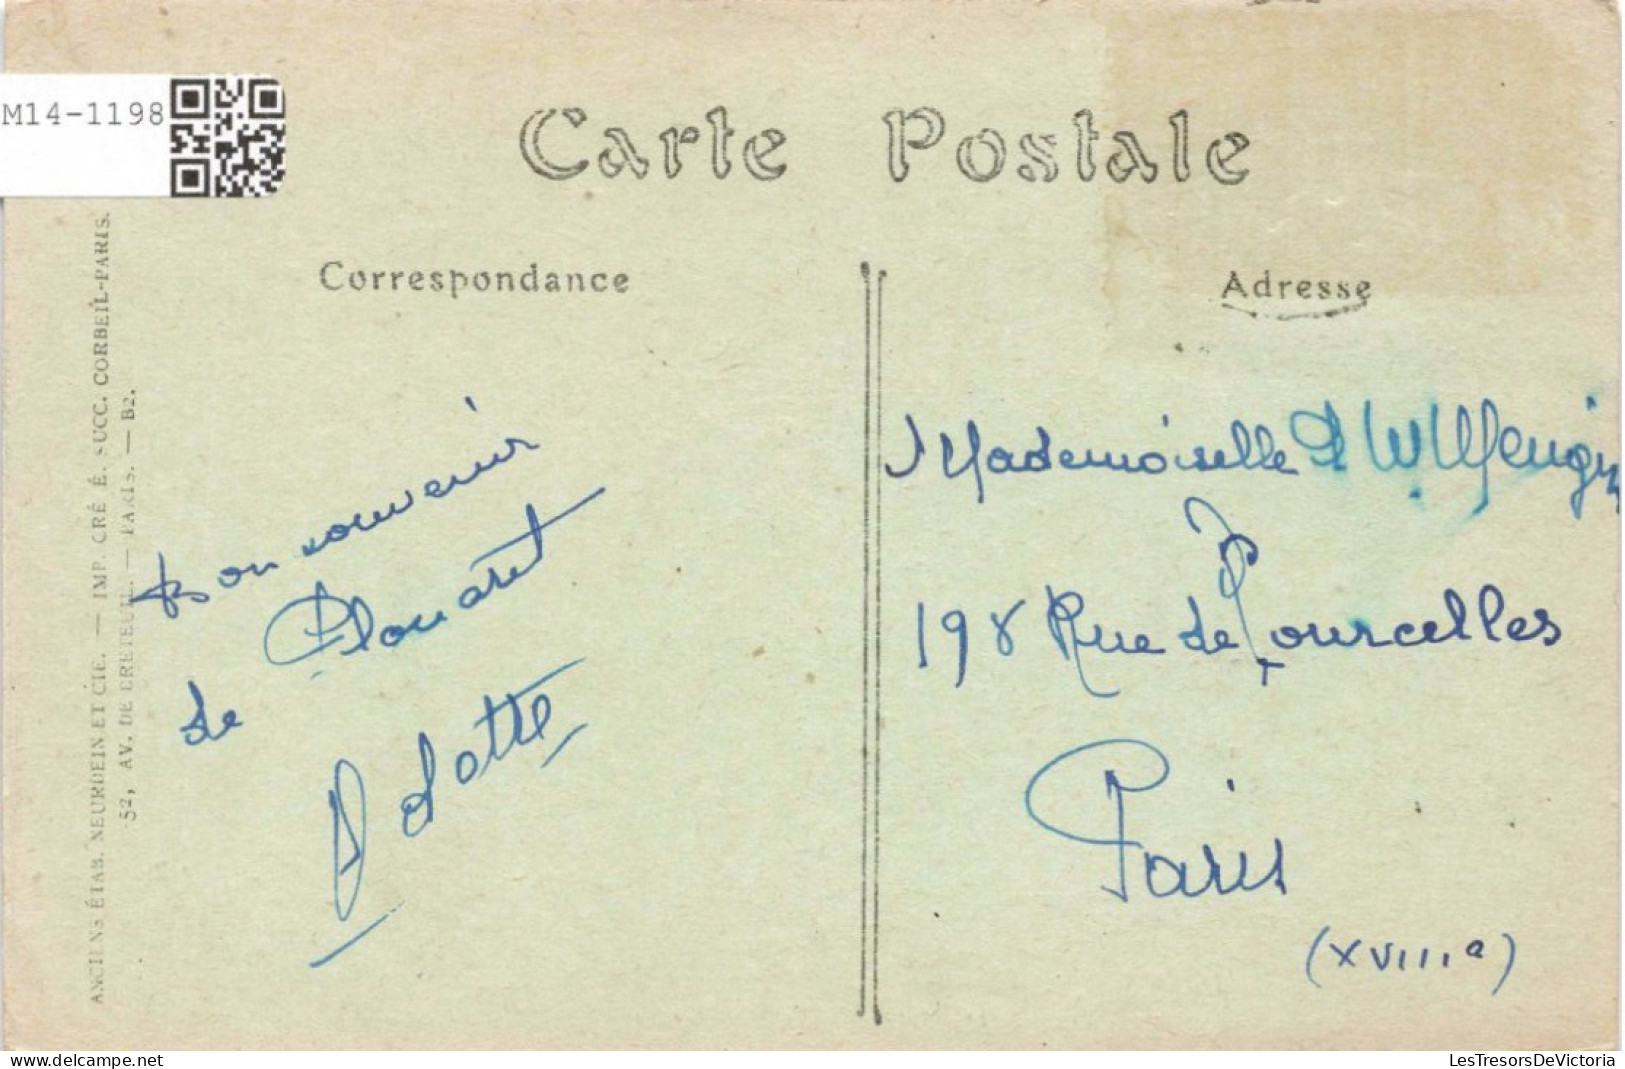 M14-1198
Carte Postale
Correspondance
Adresse
ANCIENS ÉTAB. NEURDEIN ET CIE. — IMP. CRÉ É. SUCC. CORBEIL-PARIS.
52, AV. DE BRETEUIL. — PARIS. — B2.
Bon souvenir
de Plouaret
Mademoiselle
198 Rue de Courcelles
Paris
(XVIIIe)
delcampe.net
LesTresorsDeVictoria